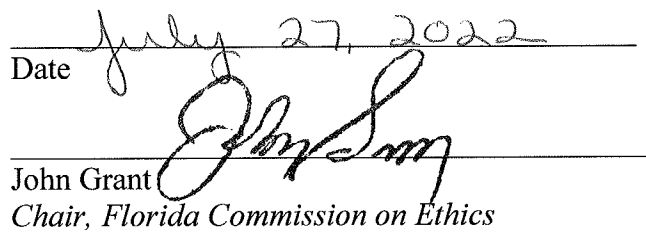 July 27, 2022
Date
John Grant
Chair, Florida Commission on Ethics